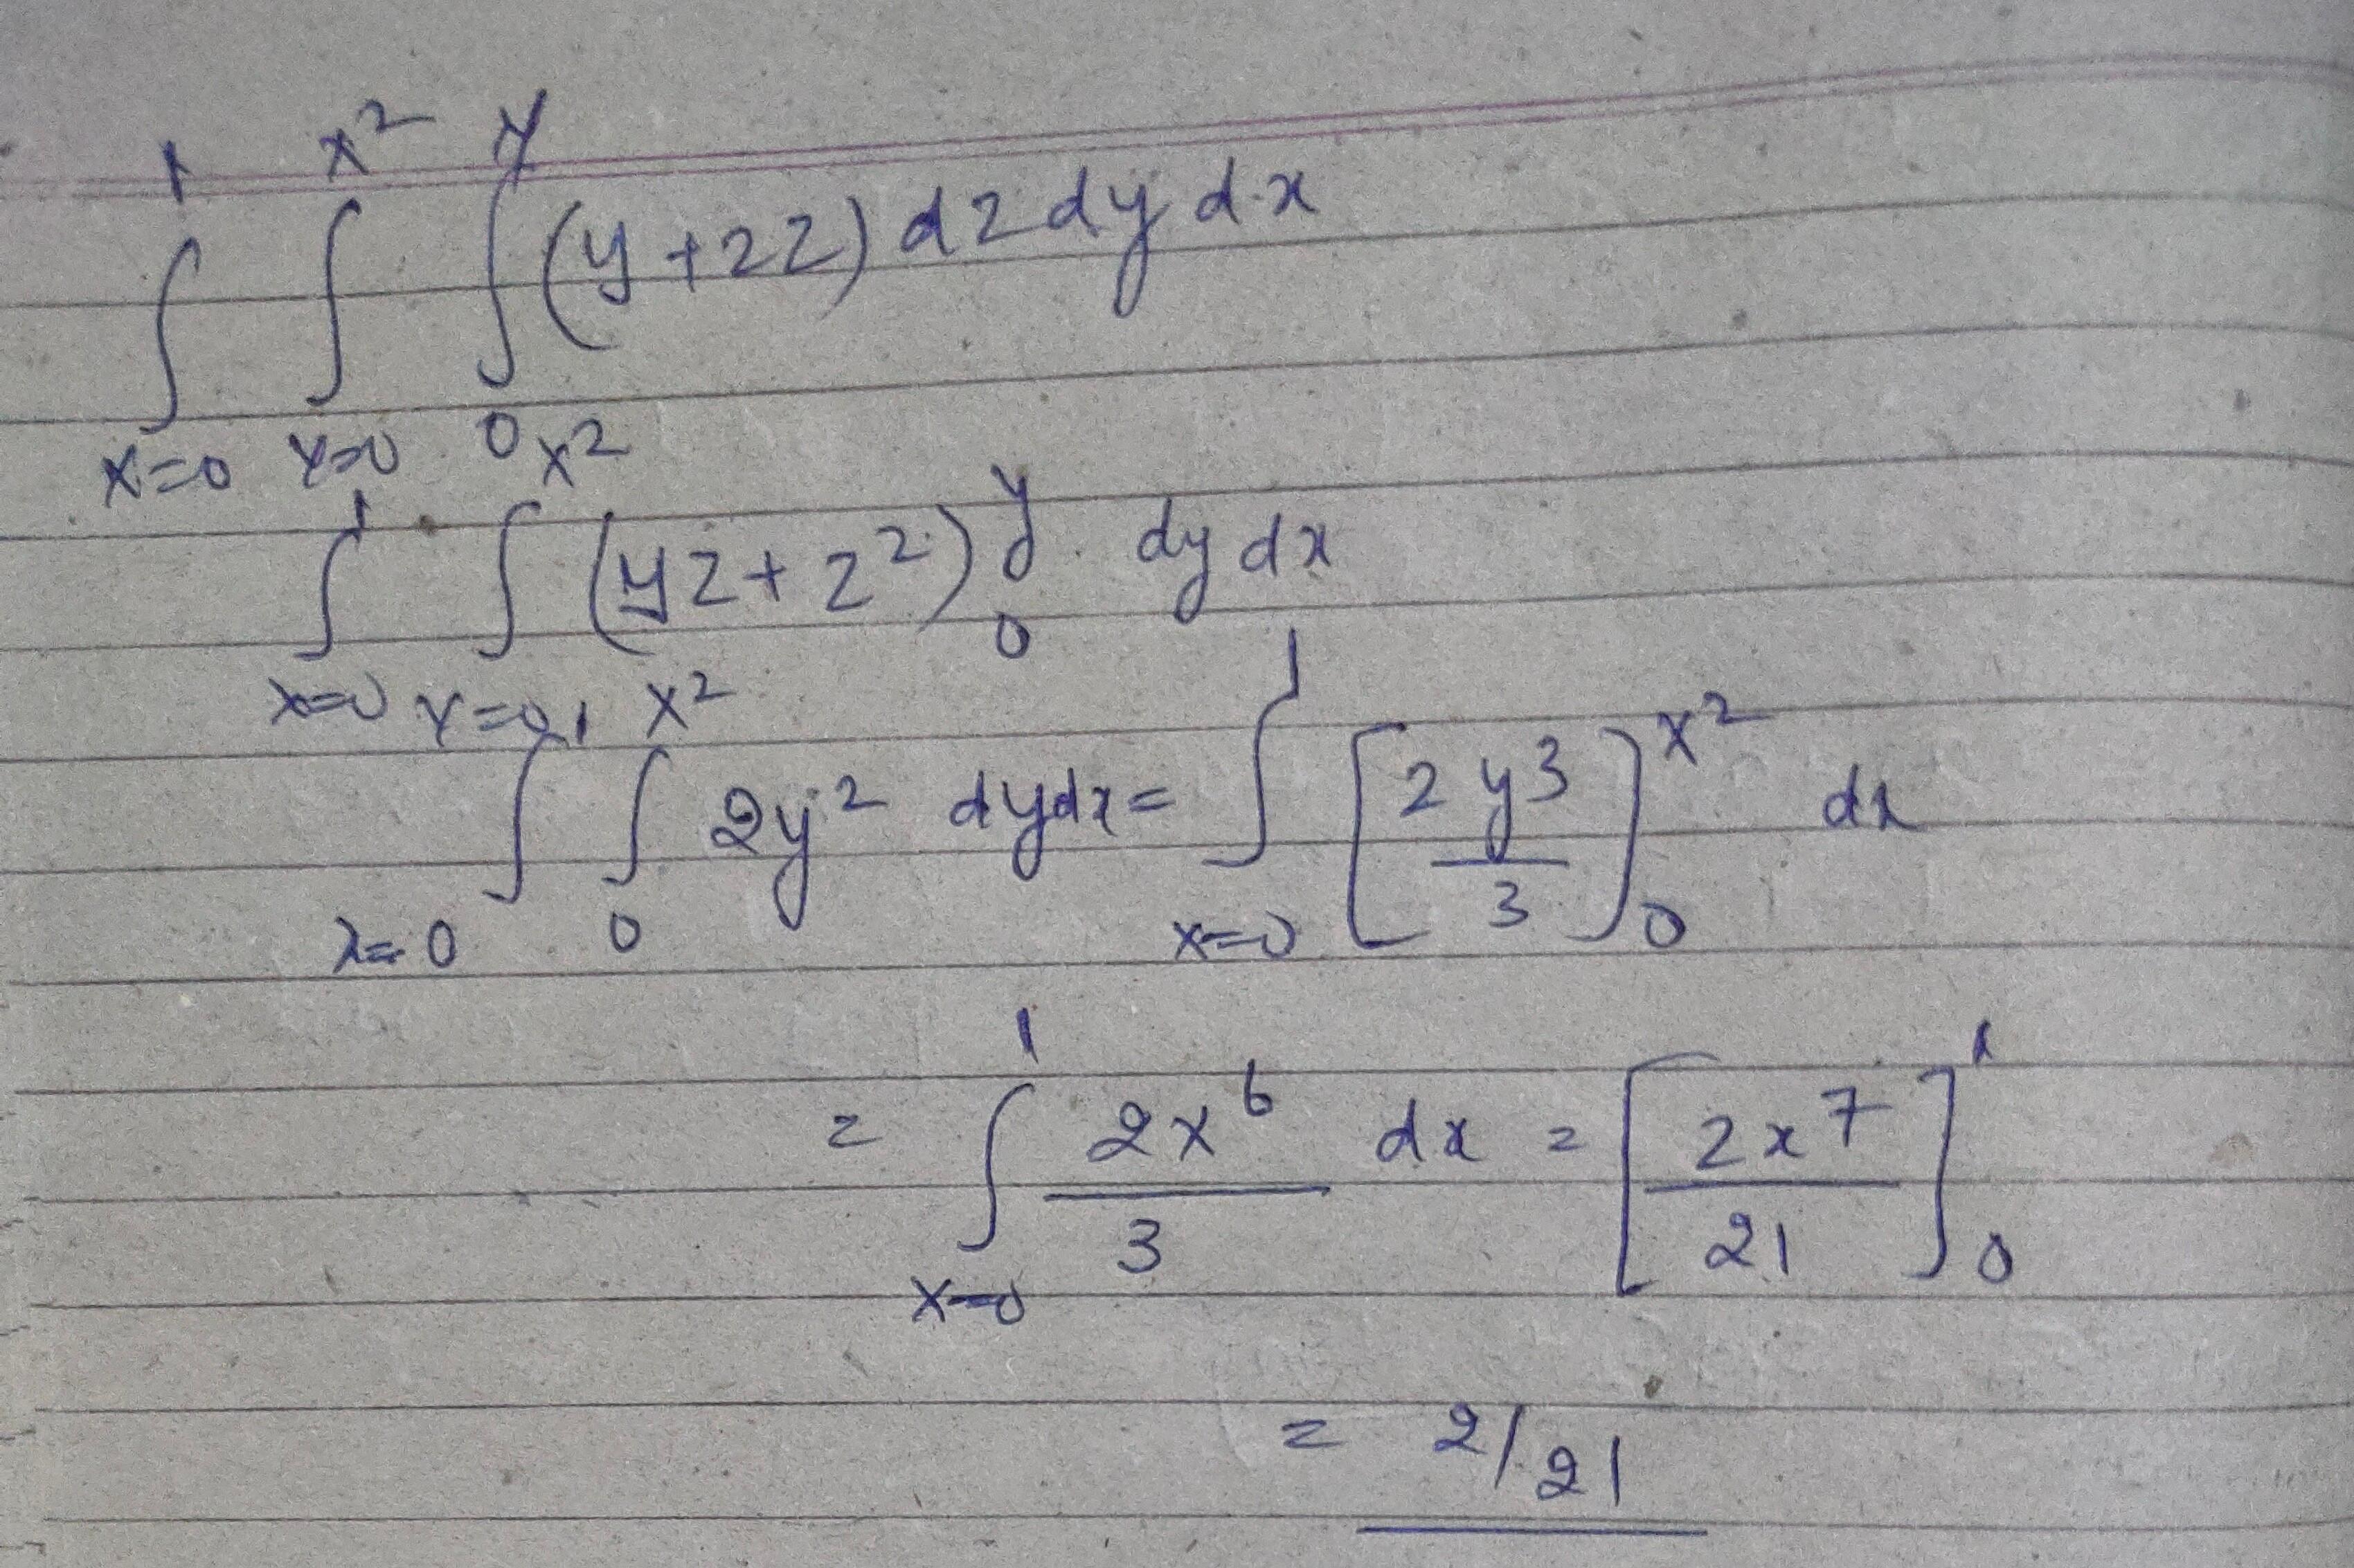 ∫_{x=0}^{1} ∫_{y=0}^{x²} ∫_{0}^{y} (y+2z) dz dy dx
∫_{x=0}^{1} ∫_{y=0}^{x²} (yz+z²)_{0}^{y} dy dx
∫_{x=0}^{1} ∫_{0}^{x²} 2y² dy dx = ∫_{x=0}^{1} [2y³/3]_{0}^{x²} dx
= ∫_{x=0}^{1} 2x⁶/3 dx = [2x⁷/21]_{0}^{1}
= 2/21